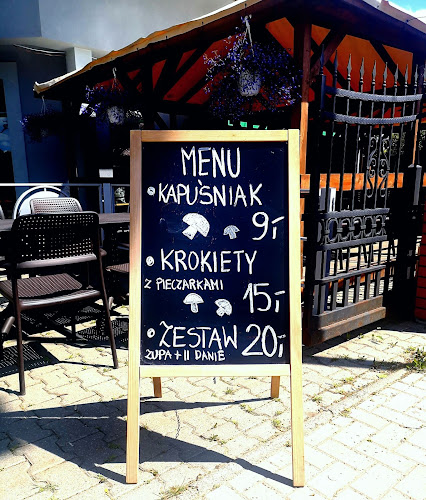 MENU
KAPUŚNIAK
9,-
KROKIETY
Z PIECZARKAMI
15,-
ZESTAW 20,-
ZUPA + II DANIE